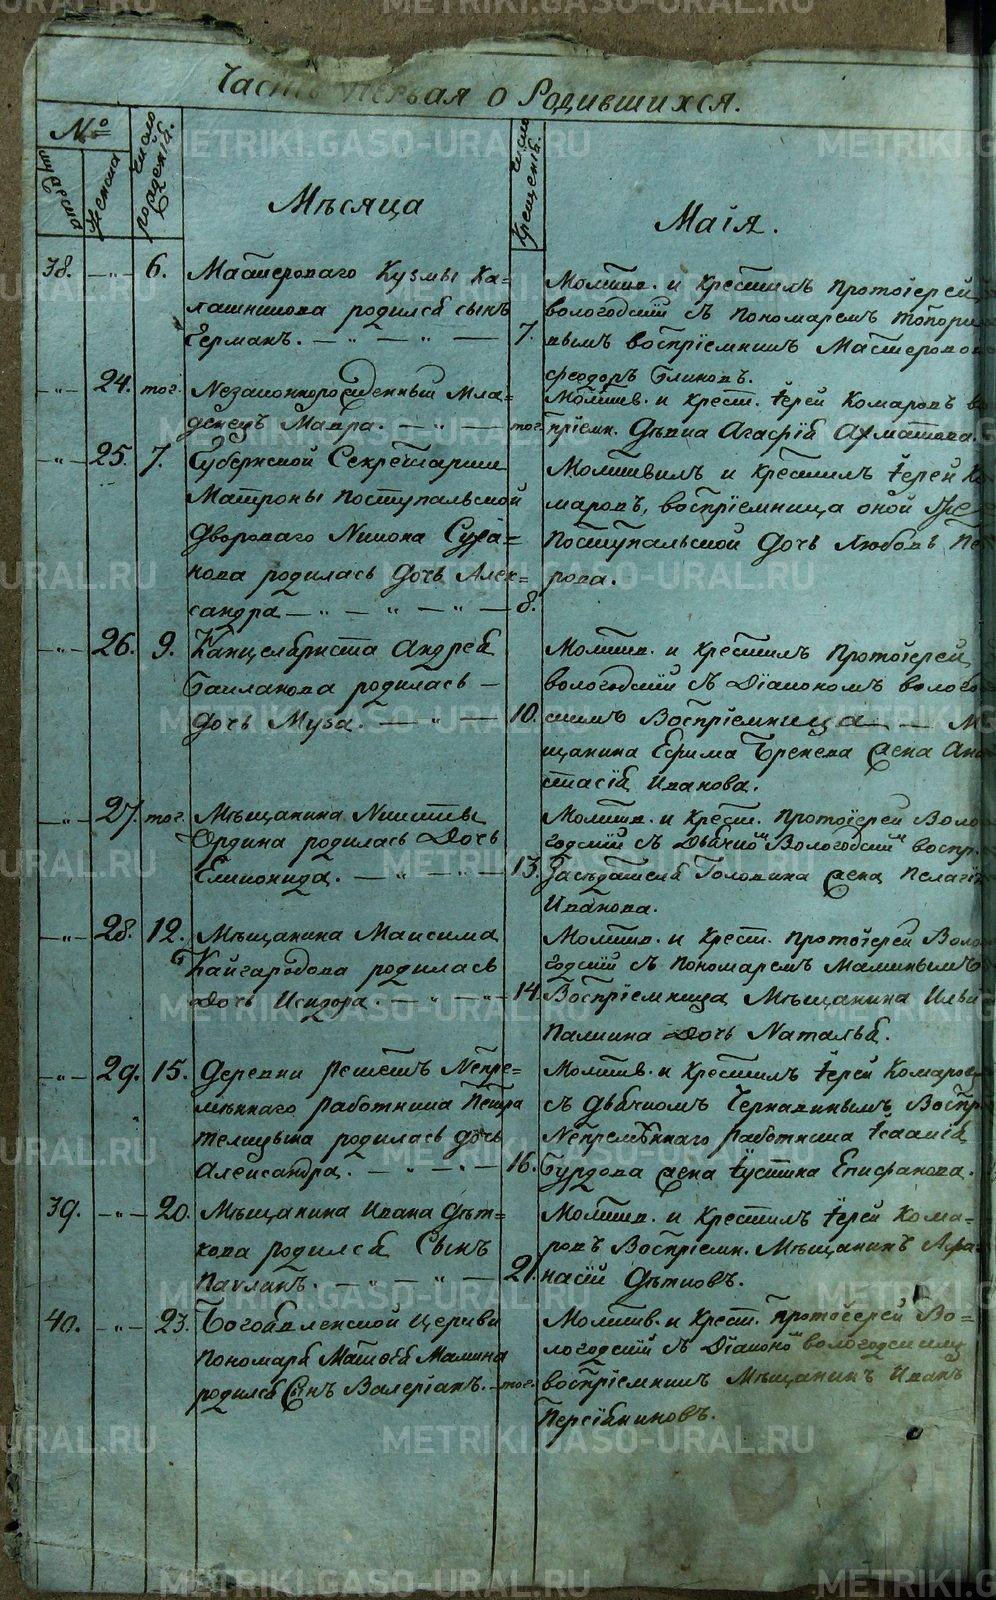 Часть первая о Родившихся.
№
мужеска
женска
Число рожденiй.
Мѣсяца
Число Крещенiй.
Маiя.
38. — 〃 — 6. Мастероваго Кузмы Ка=
лашникова родился сынъ
Германъ. — 〃 — 〃 — 7.
Молитв. и крестилъ протоiерей
вологодскiй съ пономаремъ топорк
нымъ воспрiемникъ Мастеровой
феодоръ Блиновъ.
— 〃 — 24. тог. Незаконнорожденный мла=
денецъ Мавра. — 〃 — тог.
Молитв. и крест. iерей Комаровъ во
прiемн. Дѣвка Агафiя Ахматова.
— 〃 — 25. 7. Губернской Секретарши
Матроны поступальской
двороваго Никона Суха=
нова родилась дочь Алек=
сандра — 〃 — 〃 — 〃 — 8.
Молитвилъ и крестилъ iерей Ко
маровъ, воспрiемница оной
Поступальской дочь Любовь Пе
рова.
— 〃 — 26. 9. Канцеляриста андрея
Баклакова родилась —
дочь Муза. — 〃 — 10.
Молитв. и крестилъ протоiерей
вологодскiй съ Дiакономъ волого
скимъ Воспрiемница — — М
щанина Ефима Бренева жена Ана
стасiя иванова.
— 〃 — 27. тог. Мѣщанина Никиты
Ордина родилась Дочь
Еликонида. — 〃 — 〃 — 13.
Молитв. и крест. протоiерей Воло
годскiй съ Дьячко Вологодски воспр.
Засѣдателя Головина жена пелагiя
Иванова.
— 〃 — 28. 12. Мѣщанина Максима
Кайгародова родилась
Дочь Исидора. — 〃 — 〃 — 14.
Молитв. и крест. протоiерей Воло
годскiй съ пономаремъ Маминымъ
Воспрiемница Мѣщанина Ильи
Палкина Дочь Наталья.
— 〃 — 29. 15. Деревни решетъ Непре=
мѣннаго работника Петра
телицына родилась дочь
Александра. — 〃 — 16.
Молитв. и крестилъ iерей Комаровъ
съ дьячкомъ Чернавинымъ Воспр
Непремѣннаго работника iсаакiя
Бурдова жена iустина Епифанова.
39. — 〃 — 20. Мѣщанина ивана дѣт=
кова родился Сынъ
Павлинъ. — 〃 — 〃 — 21.
Молитв. и крестилъ iерей Кома=
ровъ Воспрiемн. Мѣщанинъ Афа
насiй дѣтковъ.
40. — 〃 — 23. Богоявленской Церкви
пономаря Матвѣя Мамина
родился Сынъ Валерiанъ. — тог.
Молитв. и крест. протоiерей Во=
логодскiй съ Дiаконо вологодскимъ
воспрiемникъ Мѣщанинъ Иванъ
METRIKI.GASO-URAL.RU